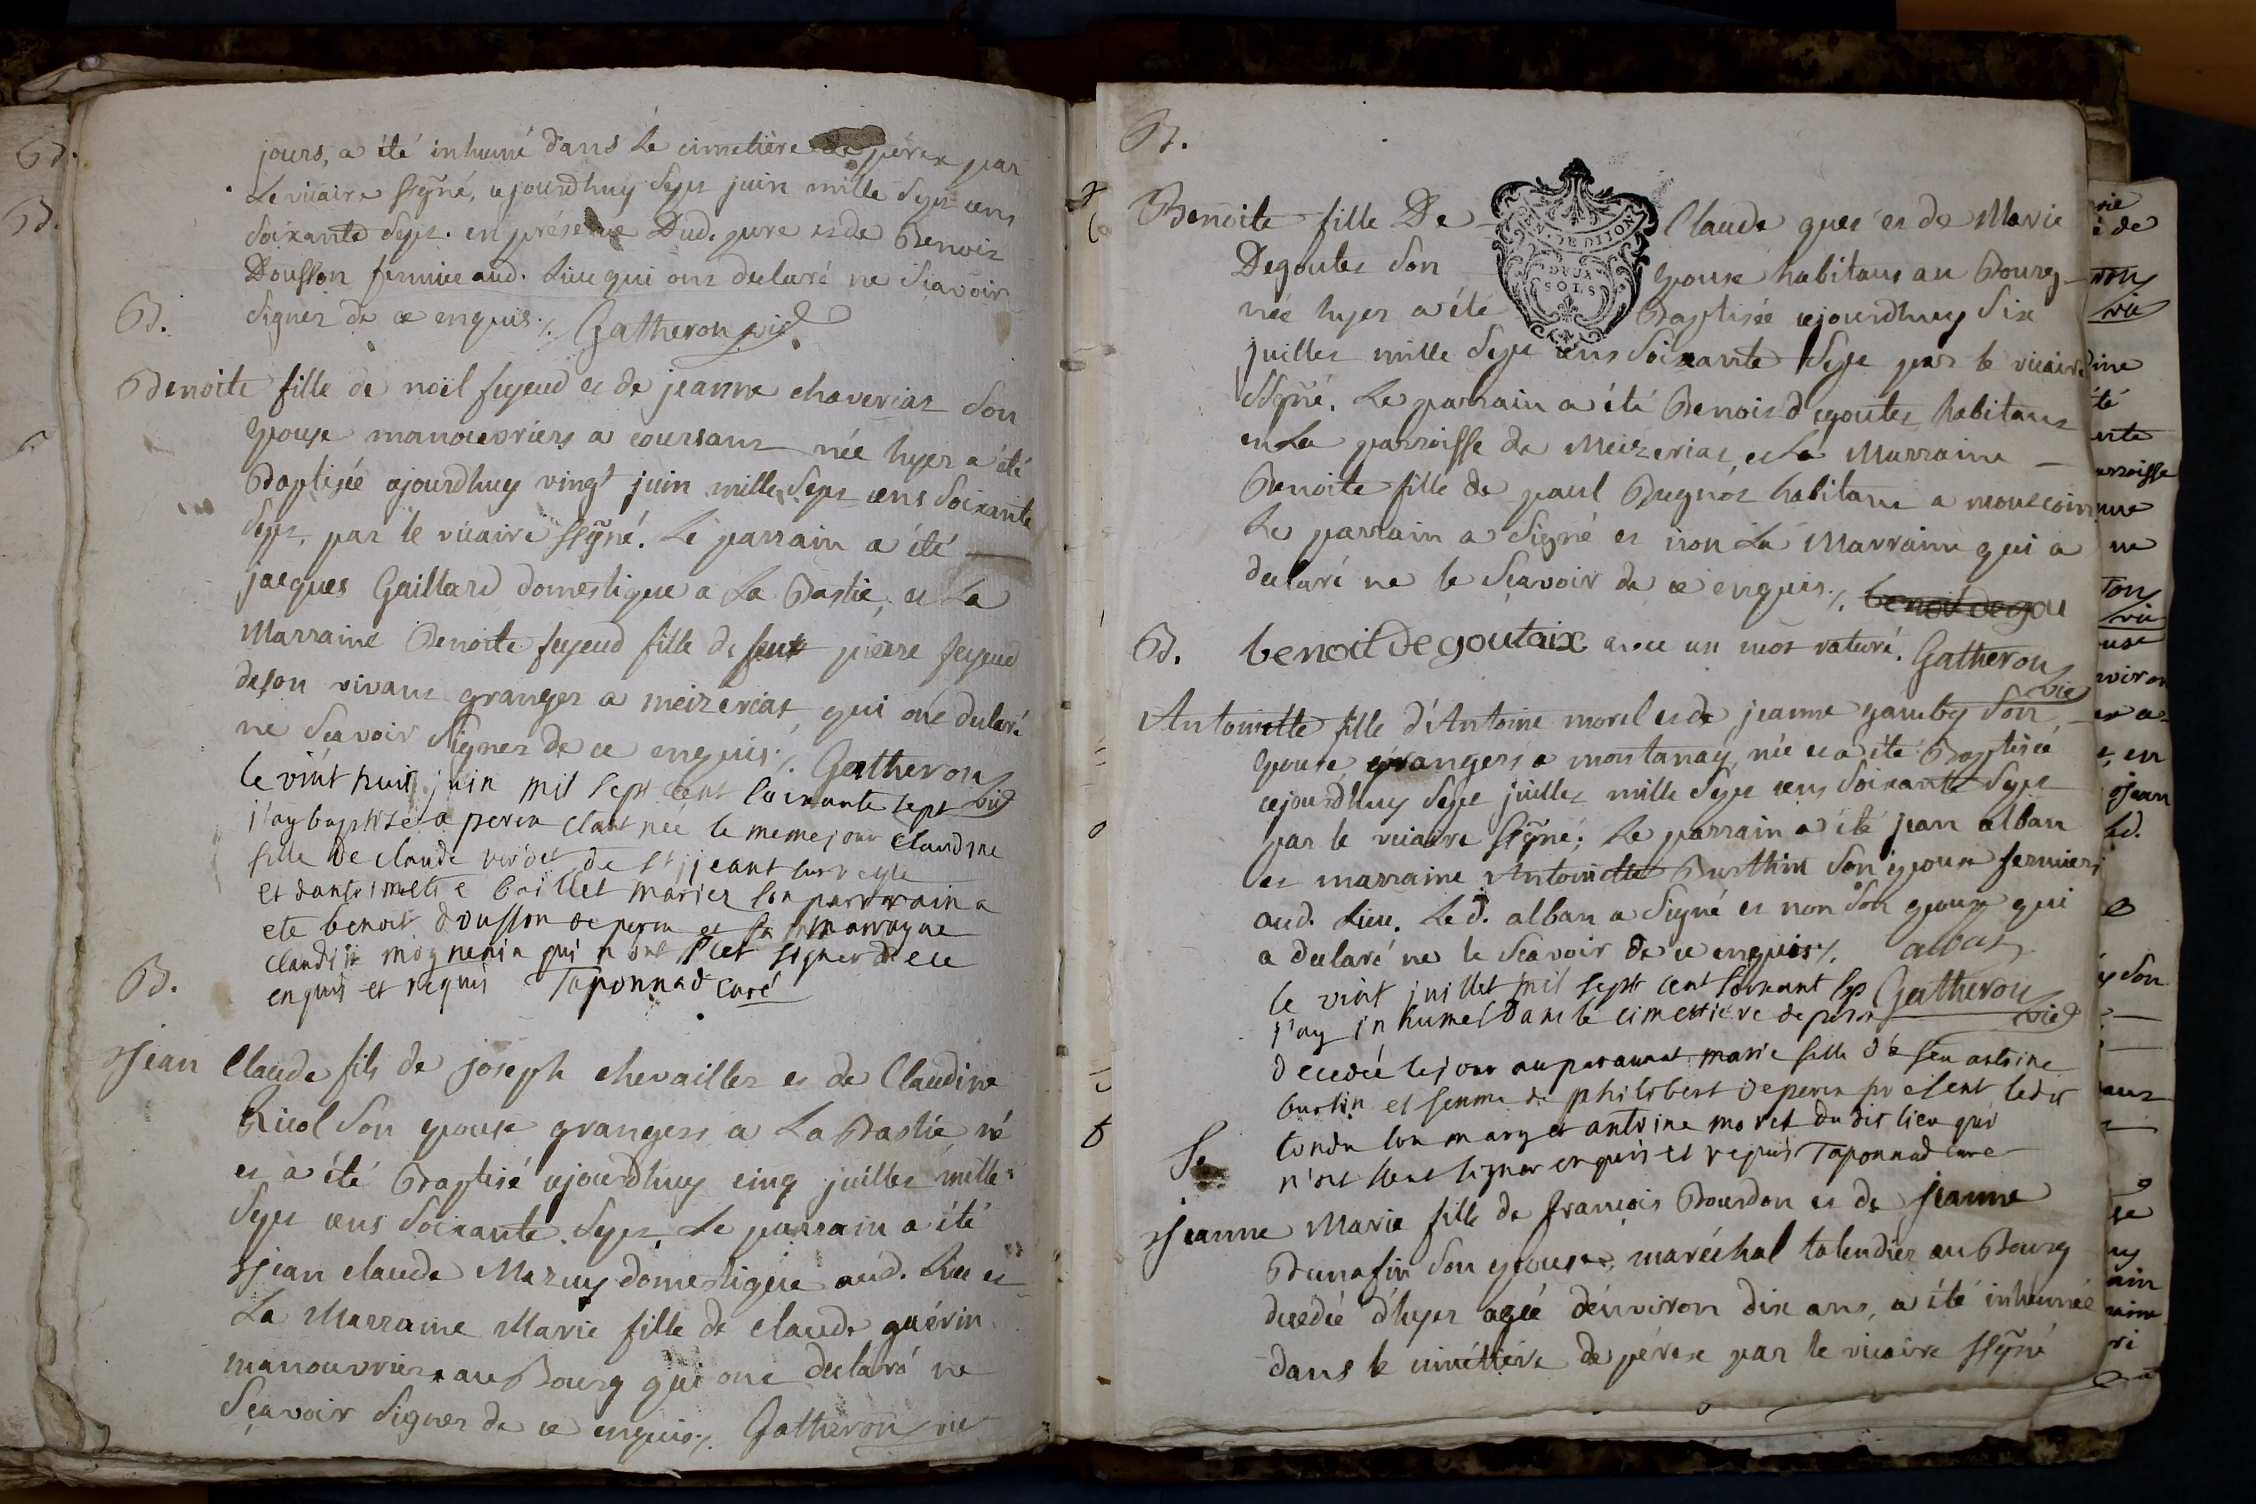 jours, a été inhumé dans le cimetière de pérex par
le vicaire ssigné, cejourdhuy sept juin mille sept cens
soixante sept. en présence Dud. pere et de Benoit
Dousson fermier aud. lieu qui ont declaré ne sçavoir
signer de ce enquis ./. Gatheron vic.
B.
Benoite fille de noël fejeud et de jeanne chaverias son
epouse manouvriers a coursant née hyer a été
Baptisée cejourdhuy vingt juin mille sept cens soixante
sept, par le vicaire ssigné. Le parrain a été
jacques Gaillard domestique a La Bastie, et La
Marraine Benoite fejeud fille de feu pierre fejeud
de son vivant granger a meizeriat, qui ont declaré
ne sçavoir signer de ce enquis ./. Gatheron vic
le vint huit juin mil sept cent soixante sept
j'ay baptisé a perex née le meme jour Claudine
fille de claude de st jeant sur veyle
et baillet mariez son parrain a
ete benoit dousson de perex et sa marrayne
claudine mognenin qui n'ont sceu signer de ce
enquis et requis Taponnad curé
B.
Jean Claude fils de joseph chevailler et de Claudine
Ricol son epouse grangers a La Bastie né
et a été Baptisé cejourdhuy cinq juillet mille
sept cens soixante sept. Le parrain a été
Jean claude Mazuy domestique aud. lieu et
La Marraine Marie fille de claude guérin
manouvrier au Bourg qui ont declaré ne
Sçavoir signer de ce enquis ./. Gatheron vic
B.
Benoite fille De Claude guer et de Marie
Degoutes son epouse habitans au Bourg
née hyer a été Baptisée cejourdhuy six
juillet mille sept cens soixante sept par le vicaire
ssigné. Le parrain a été Benoit degoutes habitant
en La parroisse de Meizeriat, et La Marraine
Benoite fille de paul Bugnot habitant a
Le parrain a signé et non La Marraine qui a
declaré ne le sçavoir de ce enquis ./. benoit degou
GEN. DE DIJON
DEUX
SOLS
B. benoit degoutaix avec un mot raturé. Gatheron vic
Antoinette fille d'Antoine morel et de jeanne gamby son
epouse grangers a montanay, née et a été Baptisée
cejourdhuy sept juillet mille sept cens soixante sept
par le vicaire ssigné; Le parrain a été jean alban
et marraine Antoinette Burthin son epouse fermiers
aud. lieu. Led. alban a signé et non son epouse qui
a declaré ne le sçavoir de ce enquis ./. alban
Gatheron vic
le vint juillet mil sept cent soixant sep
j'ay inhumé dans le cimettière de perex
decedée le jour auparavant marie fille de feu antoine
burtin et femme de philibert de perex présent ledit
son mary et antoine moret du dit lieu qui
n'ont sceut signer enquis et requis Taponnad curé
Se
Jeanne Marie fille de françois Bourdon et de jeanne
Bunafin son epouse, maréchal talendier au Bourg
decedée d'hyer agée d'environ dix ans, a été inhumée
dans le cimétière de pérex par le vicaire ssigné